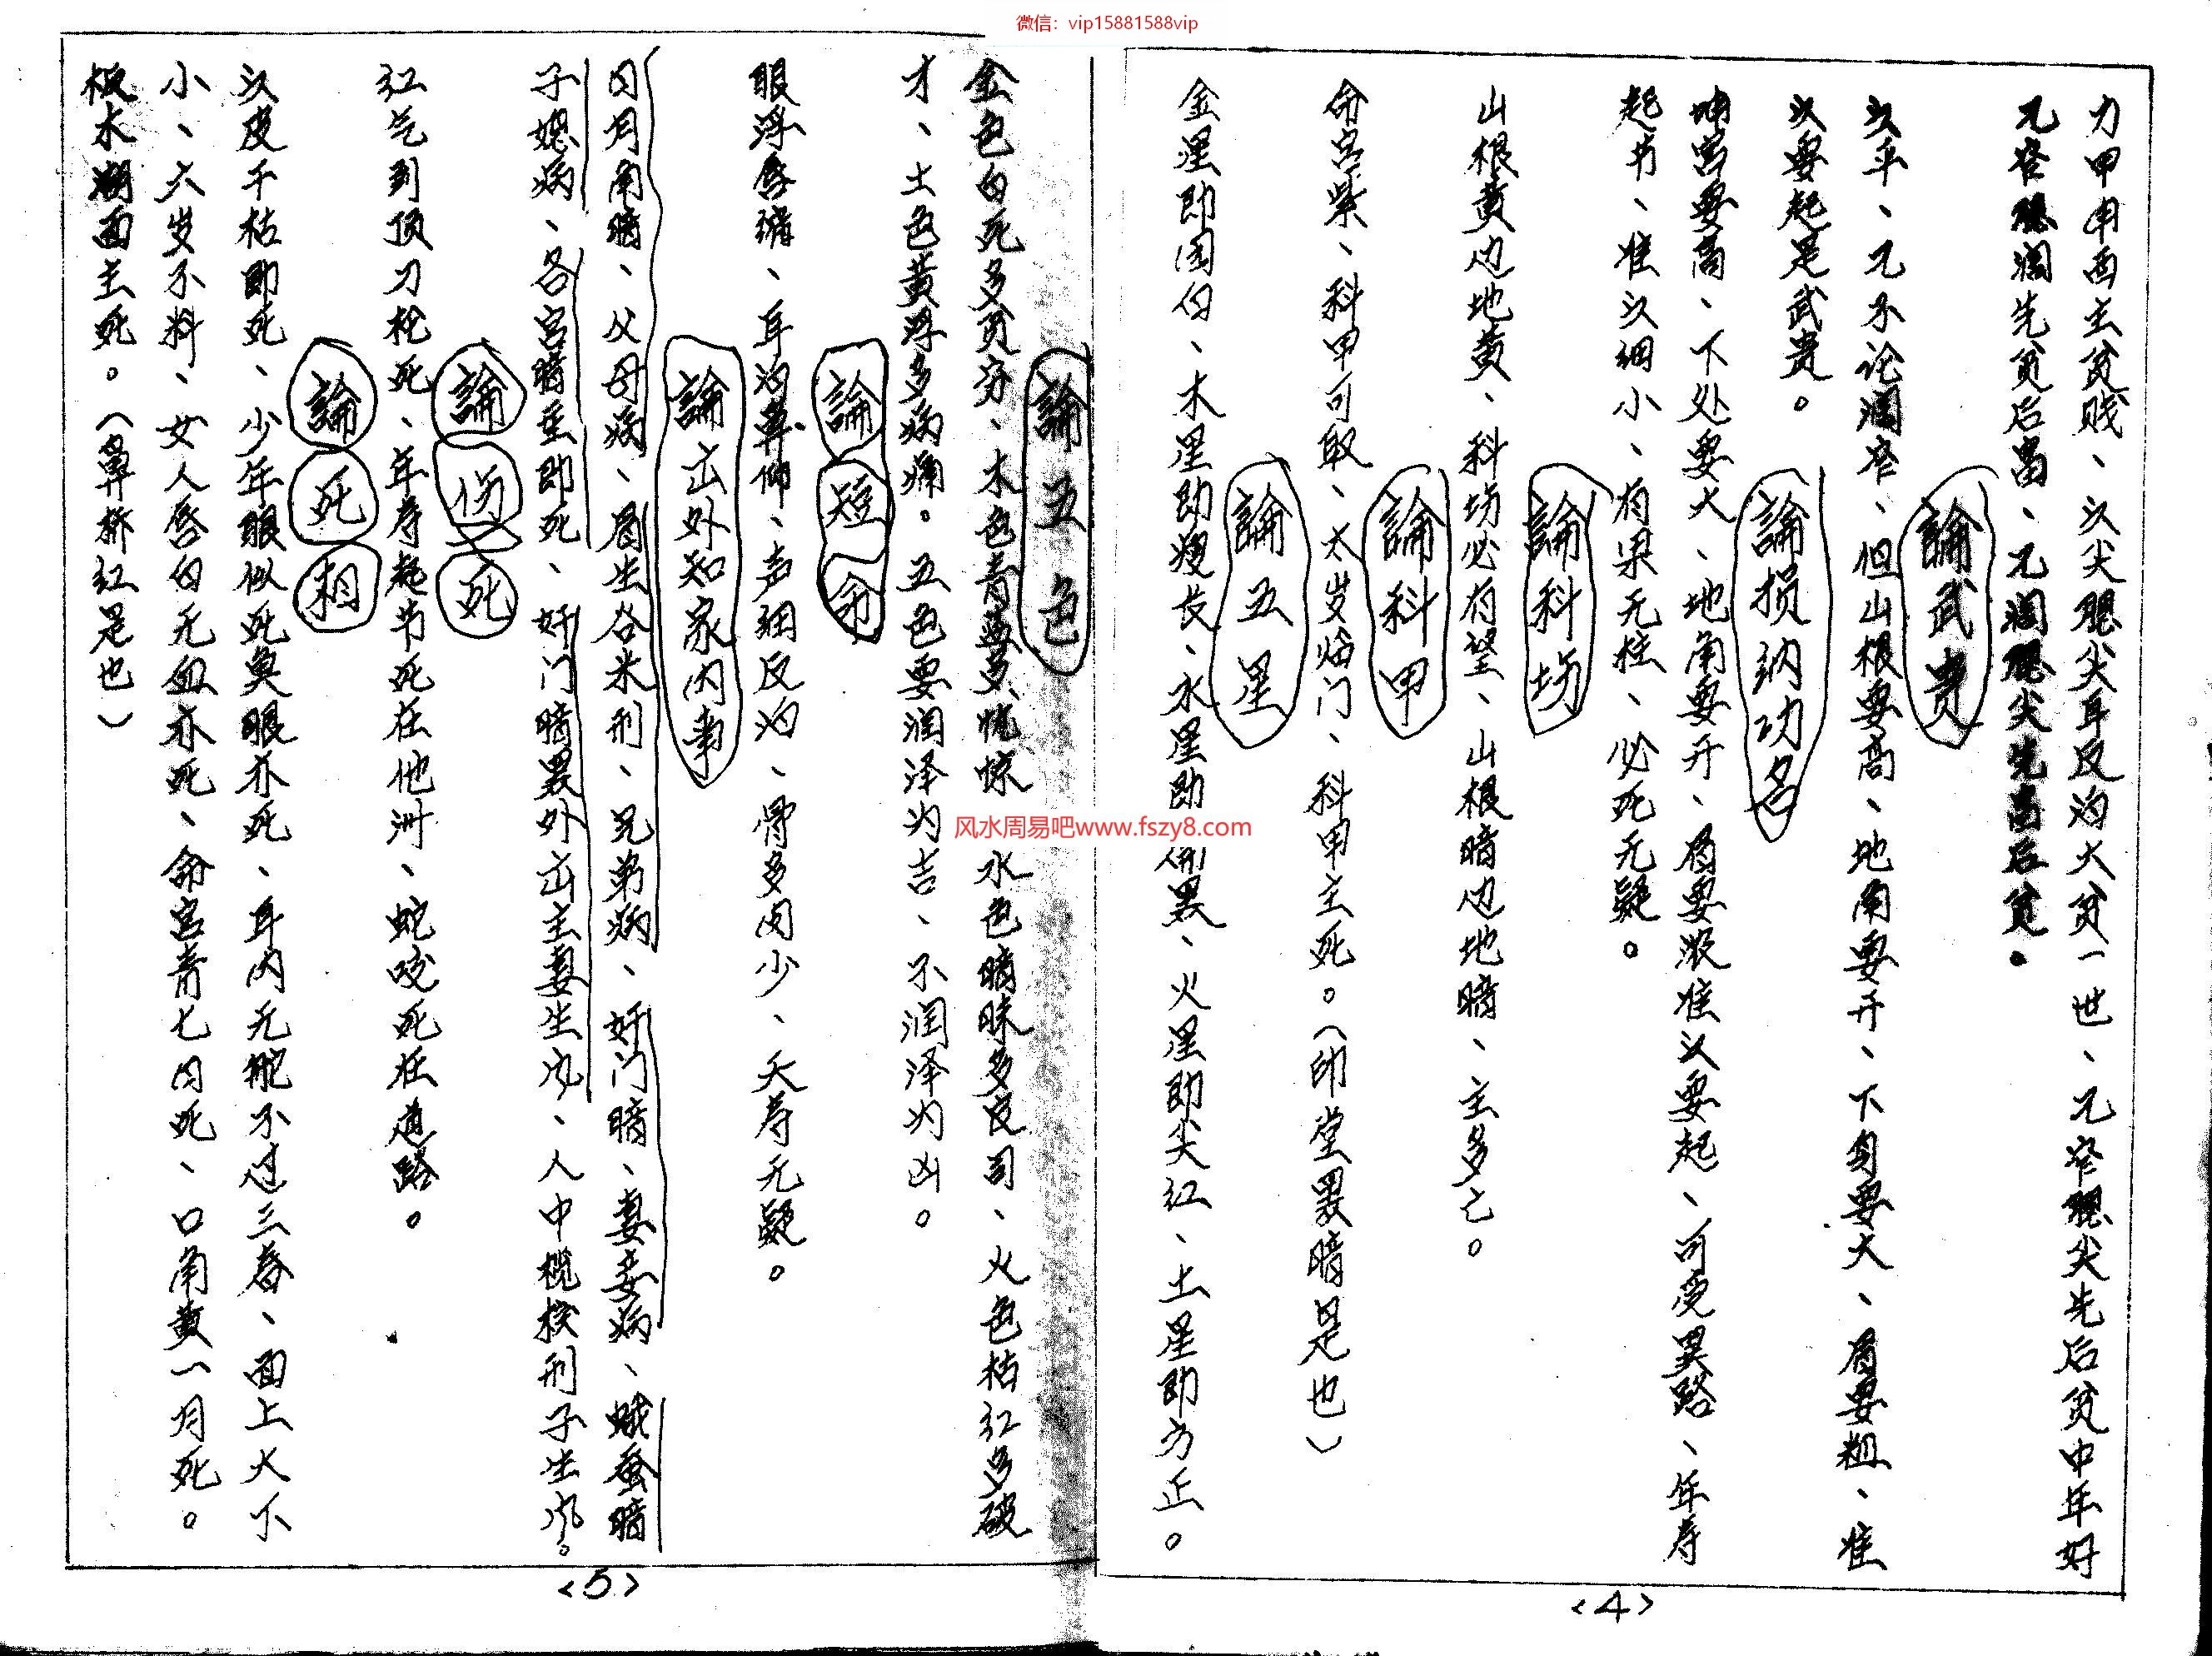 微信：vip15881588vip
力甲由面主贫贱、头尖腮尖耳反为大贫一世、兀窄腮尖先后贫中年好
兀窄腮阔先贫后富、兀阔腮尖先富后贫。
論武贵
头平、兀不论阔窄、但山根要高、地角要开、下匀要大、眉要粗、准
头要起是武贵。
論损纳功名
坤宫要高、下处要大、地角要开、眉要浓准头要起、可受異路、年寿
起节、准头细小、有梁无柱、必死无疑。
論科场
山根黄边地黄、科场必有望、山根暗边地暗、主多亡。
論科甲
命宫紫、科甲可取、太岁临门、科甲主死。（印堂黑暗是也）
論五星
金星即园白、木星即瘦长、水星即黑、火星即尖红、土星即方正。
<4>
論五色
金色白死多贫穷、木色青蓝多忧惊 水色暗昧多官司、火色枯红多破
才、土色黄浮多病痛。五色要润泽为吉、不润泽为凶。
論短命
眼浮唇缩、耳为鼻仰、声细反为、骨多肉少、夭寿无疑。
論出外知家内事
日月角暗、父母病、眉生谷米刑、兄弟病、奸门暗、妻妾病、蛾蚕暗
子媳病、各宫暗重即死、奸门暗黑外出主妻生内、人中榄按刑子生内。
論伤死
红气到顶刀枪死、年寿起节死在他洲、蛇咬死在道路。
論死相
头皮干枯即死、少年眼似死鱼眼亦死、耳内无靛不过三春、面上大下
小、六岁不料、女人唇白无血亦死、命宫青七日死、口角黄一月死。
板水湖面主死。（鼻桥红是也）
<5>
风水周易吧www.fszy8.com